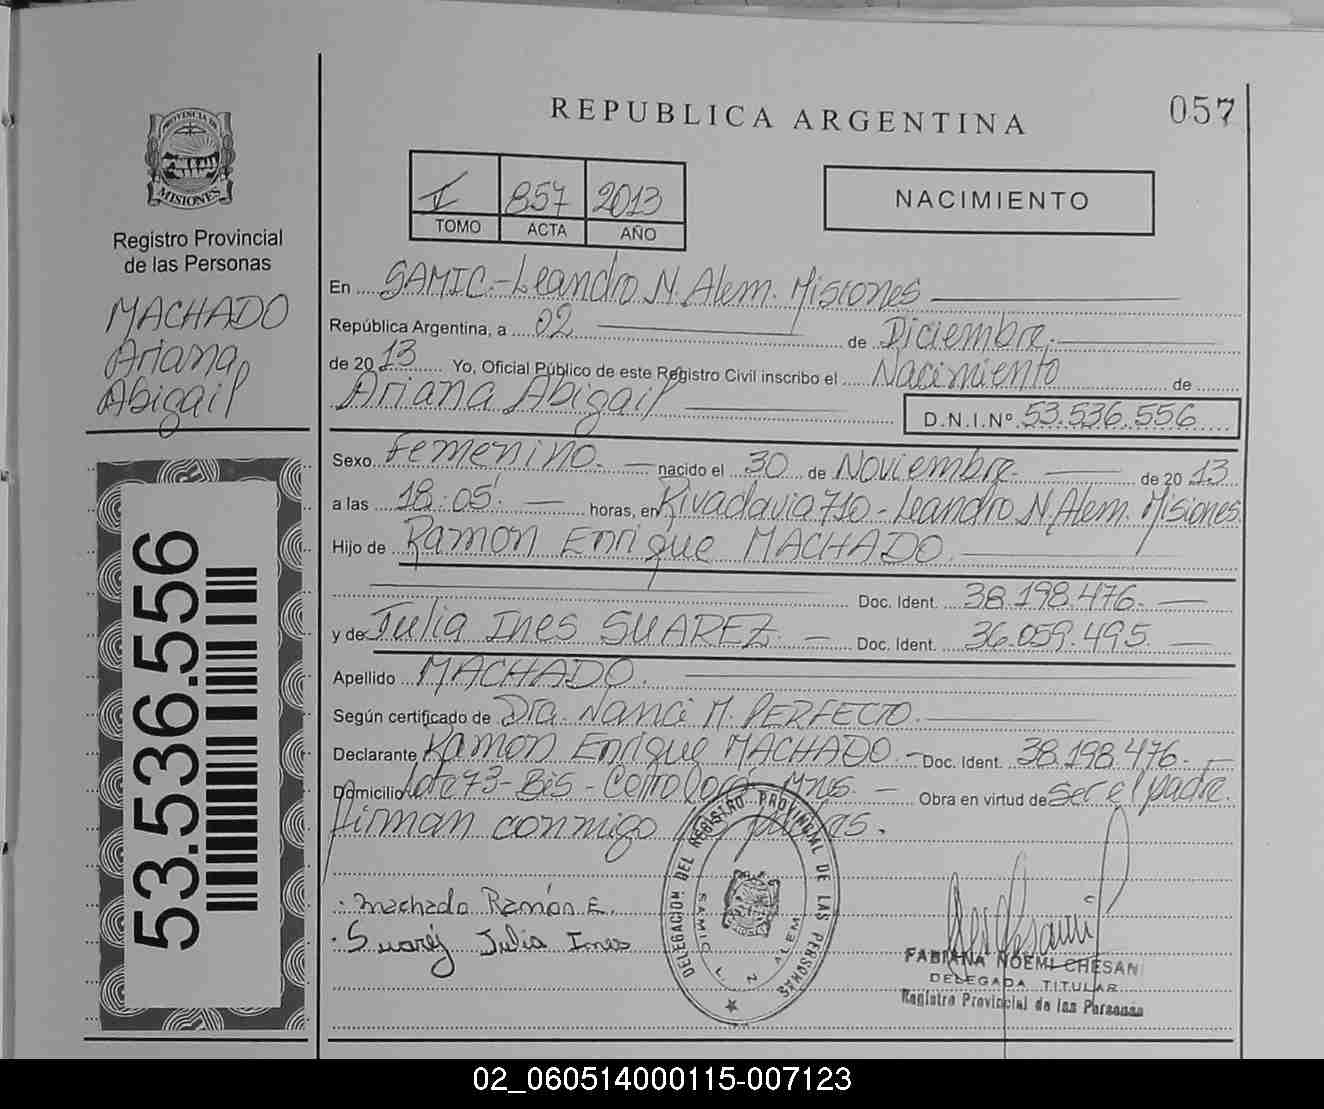 REPUBLICA ARGENTINA
057
PROVINCIA DE
MISIONES
Registro Provincial
de las Personas
MACHADO
Ariana
Abigail
53.536.556
I 857 2013
TOMO ACTA AÑO
NACIMIENTO
En SAMIC.-Leandro N. Alem. Misiones
República Argentina, a 02 de Diciembre.
de 2013 Yo, Oficial Público de este Registro Civil inscribo el Nacimiento de
Ariana Abigail D.N.I.Nº 53.536.556
Sexo Femenino. nacido el 30 de Noviembre. de 2013
a las 18:05' horas, en Rivadavia 710 - Leandro N. Alem. Misiones
Hijo de Ramon Enrique MACHADO.
Doc. Ident. 38.198.476.
y de Julia Ines SUAREZ. Doc. Ident. 36.059.495
Apellido MACHADO.
Según certificado de Dra. Nanci M. PERFECTO.
Declarante Ramon Enrique MACHADO - Doc. Ident. 38.198.476.
Domicilio Lote 73-Bis - Cerro Corá Mnes. Obra en virtud de ser el padre.
firman conmigo los padres.
Machado Ramón E.
Suarez Julia Ines
DELEGACION DEL REGISTRO PROVINCIAL DE LAS PERSONAS
SAMIC L N ALEM
FABIANA NOEMI CHESANI
DELEGADA TITULAR
Registro Provincial de las Personas
02_060514000115-007123